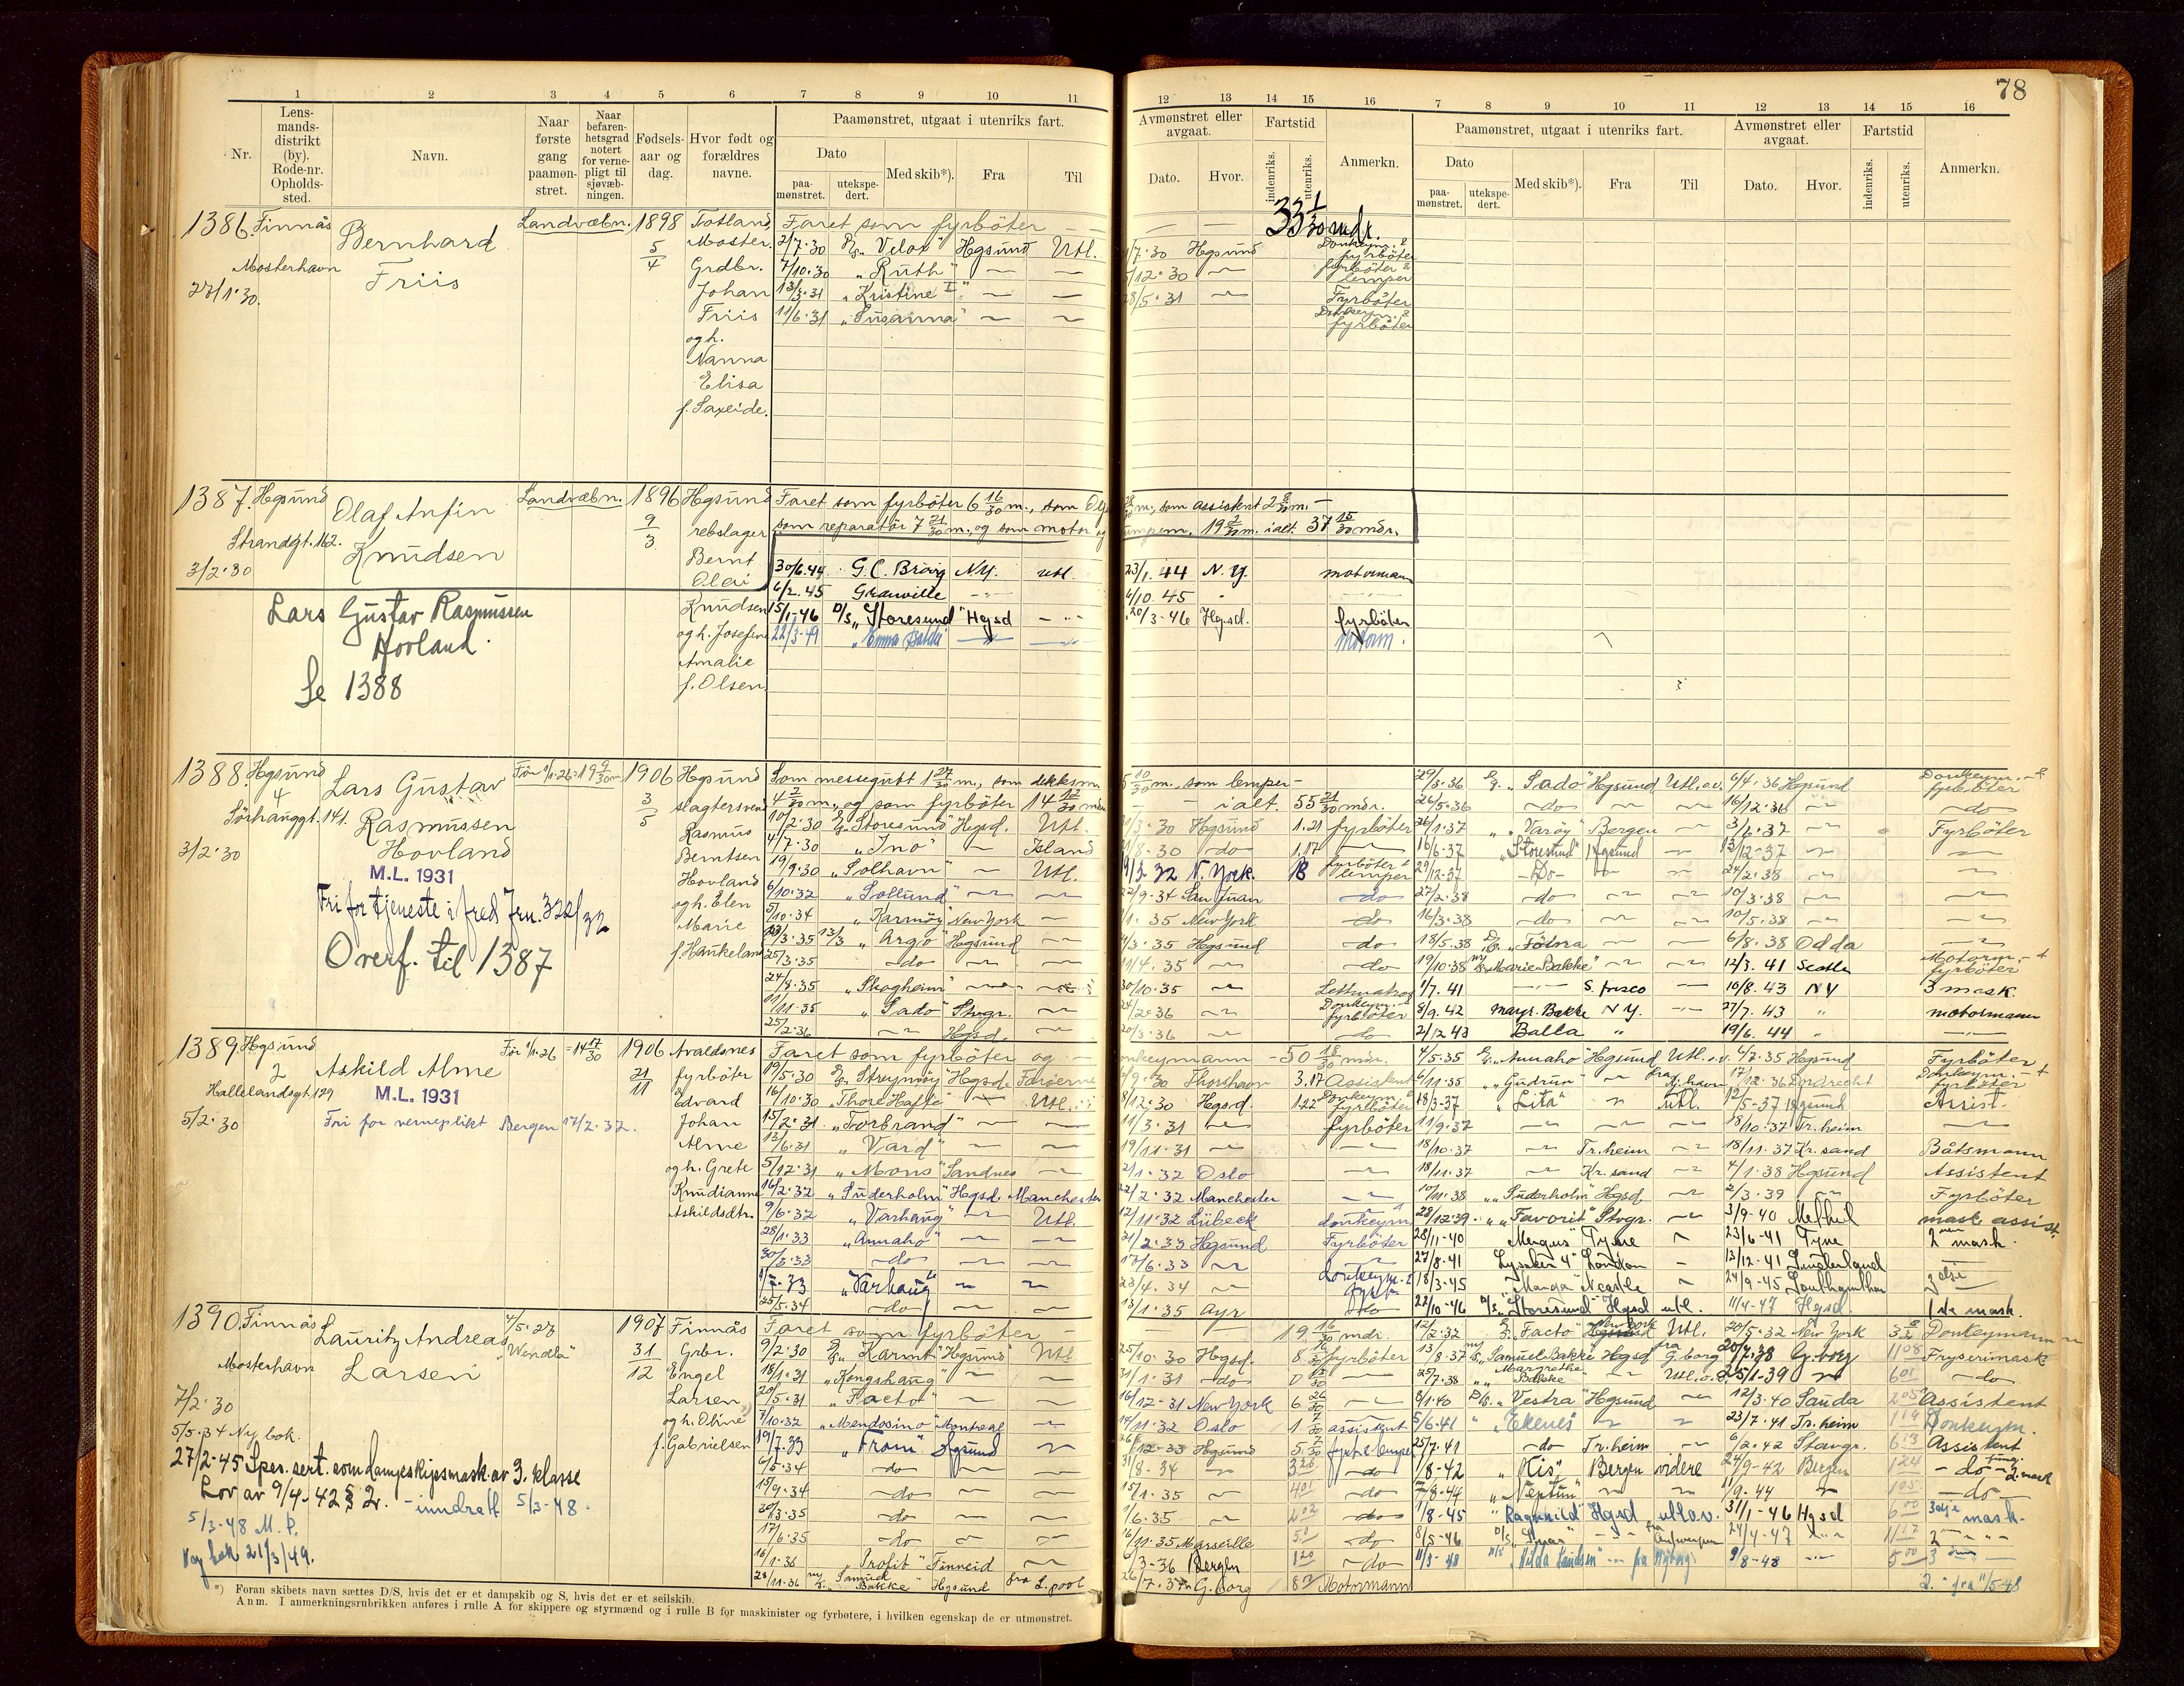 78
1 2 3 4 5 6 7 8 9 10 11
12 13 14 15 16 7 8 9 10 11 12 13 14 15 16
Nr.
Lens-
mands-
distrikt
(by).
Rode-nr.
Opholds-
sted.
Navn.
Naar
første
gang
paamøn-
stret.
Naar
befaren-
hetsgrad
notert
for verne-
pligt til
sjøvæb-
ningen.
Fødsels-
aar og
dag.
Hvor født og
forældres
navne.
Paamønstret, utgaat i utenriks fart.
Dato
paa-
mønstret.
utekspe-
dert.
Med skib*).
Fra
Til
Avmønstret eller
avgaat.
Dato.
Hvor.
Fartstid
indenriks.
utenriks.
Anmerkn.
Paamønstret, utgaat i utenriks fart.
Dato
paa-
mønstret.
utekspe-
dert.
Med skib*).
Fra
Til
Avmønstret eller
avgaat.
Dato.
Hvor.
Fartstid
indenriks.
utenriks.
Anmerkn.
1386. Finnås
Mosterhavn
27/1·30.
Bernhard
Friis
Landvæbn.
1898
5/4
Totland
Moster.
Grdbr.
Johan
Friis
og h.
Nanna
Elisa
f. Saxeide.
Faret som fyrbøter — 33 1/30 mdr.
2/7·30 "Velox" Hgsund Utl. /7·30 Hgsund Donkeym. & fyrbøter
7/10·30 "Ruth" — — /12·30 — fyrbøter & lemper
13/3·31 "Kristine I" — — 28/5·31 — Fyrbøter
11/6·31 "Susanna" — — Donkeym. & fyrbøter
1387. Hgsund
Strandgt. 162.
3/2·30
Olaf Anfin
Knudsen
Landvæbn.
1896
9/3
Hgsund
rebslager
Bernt
Olai
Knudsen
og h. Josefine
Amalie
f. Olsen
Faret som fyrbøter 6 16/30 m., som m., som assistent 2 m.
som reparatør 7 21/30 m., og som motor 19 m. ialt 37 15/30 mdr.
30/6.44 G.C. Brøvig N.Y. utl. 23/1.44 N.Y. motormann
6/2.45 Granville 6/10.45
15/1-46 D/S "Storesund" Hgsd 20/3-46 Hgsd. fyrbøter
22/3-49 "Emma Bakke" motorm.
Lars Gustav Rasmussen
Hovland.
Se 1388
1388. Hgsund
4
Sørhauggt. 141.
3/2·30
Lars Gustav
Rasmussen
Hovland
M.L. 1931
Fri for tjeneste i fred Jrn. 322/32
Overf. til 1387
Før 1/1·26 = 19 9/30 m
1906
3/5
Hgsund
slagtersvend
Rasmus
Berntsen
Hovland
og h. Elen
Marie
f. Haukeland
Som messegutt 1 27/30 m., som dekksm 5 10/30 m., som lemper —
4 2/30 m., og som fyrbøter 14 12/30 m — ialt. 55 21/30 mdr.
10/2·30 "Storesund" Hgsd. Utl. /3·30 Hgsund 1.21 fyrbøter
4/7·30 "Ino" — Island /8·30 do 1.17 —
19/9·30 "Solhavn" — Utl. 9/3 32 N. York. 18 fyrbøter & lemper
6/10·32 "Sollund" — — 22/9·34 San Juan do
5/10·34 "Karmøy" New York — /1·35 New York do
13/3·35 13/3 "Argo" Hgsund — /3·35 Hgsund do
25/3·35 do — — 11/4·35 — do
24/8·35 "Skagheim" — — 30/10·35 — Lettmatros
11/11·35 "Sado" Stvgr. — 24/2·36 — Donkeym. & fyrbøter
25/2·36 — Hgsd. — 20/3·36 — do
29/3·36 "Sado" Hgsund Utl.o.v. 6/4·36 Hgsund Donkeym. & fyrbøter
26/5·36 do — — 16/12·36 — do
26/1·37 "Varøy" Bergen — 3/6·37 — Fyrbøter
16/6·37 "Storesund" Hgsund — 13/12·37 — —
29/12·37 Do — — 24/2·38 — —
27/2·38 do — — 10/3·38 — —
16/3·38 do — — 10/5·38 — —
18/5·38 "Fotna" — — 6/8·38 Odda —
19/10·38 "Marie Bakke" — — 12/3·41 Seattle Motorm. & fyrbøter
1/7.41 — S. frisco — 10/8.43 NY 3 mask.
8/9.42 Margr. Bakke N.Y. — 27/7.43 " motormann
21/2 43 Balla " 19/6.44 " —
1389. Hgsund
2
Hallelandsgt. 129
5/2·30
Askild Alme
M.L. 1931
Fri for verneplikt Bergen 17/2·32.
Før 1/1·26 = 14 17/30
1906
21/11
Avaldsnes
fyrbøter
Edvard
Johan
Alme
og h. Grete
Knudianne
Askildsdtr.
Faret som fyrbøter og donkeymann — 50 18/30 mdr.
19/5·30 "Streymoy" Hgsd. Færøerne /9·30 Thorshavn 3.17 Assistent
16/10·30 "Thore Hafte" — Utl. 8/12·30 Hgsd. 1.22 Donkeym. & fyrbøter
15/2·31 "Torbrand" — — 11/3·31 — fyrbøter
12/6·31 "Vard" — — 19/11·31 — —
5/12·31 "Mons" Sandnes — 2/1·32 Oslo —
16/2·32 "Suderholm" Hgsd. Manchester 22/2·32 Manchester —
9/6·32 "Varhaug" — Utl. 12/11·32 Lübeck donkeym.
28/1·33 "Annaho" — — 21/2·33 Hgsund Fyrbøter
30/3·33 do — — 17/6·33 —
1/7·33 "Varhaug" — — 23/4·34 — donkeym. &
25/5·34 do — — 13/1·35 Ayr do
4/5·35 "Annaho" Hgsund Utl.o.v. 4/7·35 Hgsund Fyrbøter
6/11·35 "Gudrun" — 17/12·36 Dordrecht Donkeym. & fyrbøter
18/3-37 "Lita" — Utl. 12/5-37 Hgsund Assist.
11/9·37 — — — 18/10·37 Tr.heim —
18/10·37 — Tr.heim — 18/11·37 Kr.sand Båtsmann
18/11·37 — Kr.sand — 4/1·38 Hgsund Assistent
10/11·38 "Suderholm" Hgsd — 2/3·39 — Fyrbøter
28/12·39 "Favorit" Stvgr. — 3/9-40 Methil mask. assist.
28/11-40 "Mergus" Tyne — 23/6-41 Tyne 2nen mask.
27/8-41 Lysaker 4" London — 13/12-41 Sunderland
18/3-45 "Manga" Ncastle — 24/9-45 Southhampton 3dje
22/10-46 D/S "Storesund" Hgsd utl. 11/4-47 Hgsd. 1ste mask.
1390. Finnås
Mosterhavn
7/2·30
5/5·34 Ny bok.
27/2-45 Spes. sert. som dampskipsmask. av 3. klasse
Lov av 9/4-42 § 2. — inndratt 5/3-48.
5/3-48 M.P.
Ny bok 21/3/49.
Lauritz Andreas
Larsen
4/5·27
"Wendla"
1907
31/12
Finnås
Grbr.
Engel
Larsen
og h. Oline
f. Gabrielsen
Faret som fyrbøter — 19 16/30 mdr.
9/2·30 "Karmt" Hgsund Utl 25/10·30 Hgsd. 8 16/30 fyrbøter
18/1·31 "Kongshaug" — — 31/1·31 do 0 13/30 —
20/5·31 "Facto" — — 16/12-31 New York 6 26/30 —
7/10·32 "Mendosino" Montreal — 14/11·32 Oslo 1 7/30 assistent
19/7·33 "Fram" Hgsund — /12-33 Hgsund 5 7/30
6/5·34 do — — 31/8·34 — 3.26 do
15/9·34 do — — 15/1·35 — 4.01 do
20/3·35 do — — 1/6·35 — 2.02 do
17/6·35 do — — 16/11·35 Marseille 5.0 do
16/1·36 "Profit" Finneid — 6/3-36 Bergen 1.20 do
28/11·36 "Samuel Bakke" Hgsund fra L.pool 26/7·37 G.borg 8.2 Motormann
12/2·32 "Facto" New York Utl. 20/5·32 New York 3 8/30 Donkeymann
13/8·37 "Samuel Bakke" Hgsd fra G.borg 20/7·38 G.borg 11.08 Fryserimask
25/7·38 "Margrethe Bakke" — Utl.o.v. 25/1-39 — 6.01 do
8/1·40 D/S "Vestra" Hgsund — 12/3·40 Sauda 2.05 Assistent
5/6·41 "Ekenes" — — 23/7·41 Tr.heim 1.19 Donkeym.
25/7·41 do Tr.heim — 6/2·42 Stavgr. 6.13 Assistent
1/8-42 "Kis" Bergen videre 24/9-42 Bergen 1.24 — do — fung. 2. mask
7/8-44 "Neptun" — — 11/9·44 — 1.05 — do —
1/8-45 "Ragnhild" Hgsd utl.o.v. 31/1-46 Hgsd 6.00 3dje mask.
8/5-46 D/S — fra Antwerpen 24/4-47 — 11.17 2
11/3-48 D/S "Hilda Knudsen" — fra Nyborg 9/8-48 — 5.00 3
2. " fra 11/5-48
*) Foran skibets navn sættes D/S, hvis det er et dampskib og S, hvis det er et seilskib.
Anm. I anmerkningsrubrikken anføres i rulle A for skippere og styrmænd og i rulle B for maskinister og fyrbøtere, i hvilken egenskap de er utmønstret.